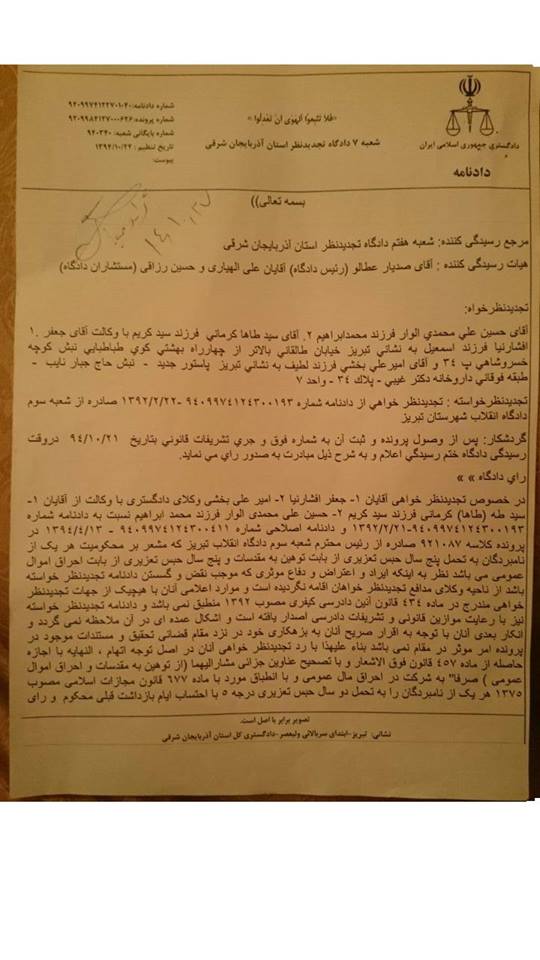 شماره دادنامه: ۹۴۰۹۹۷۴۱۲۲۷۰۱۰۴۰
شماره پرونده: ۹۲۰۹۹۸۴۱۳۷۰۰۰۶۲۶
شماره بایگانی شعبه: ۹۴۰۳۴۰
تاریخ تنظیم: ۱۳۹۴/۱۰/۲۲
پیوست:
«فلا تتبعوا الهوی ان تعدلوا»
شعبه ۷ دادگاه تجدیدنظر استان آذربایجان شرقی
دادگستری جمهوری اسلامی ایران
دادنامه
بسمه تعالی))
مرجع رسیدگی کننده: شعبه هفتم دادگاه تجدیدنظر استان آذربایجان شرقی
هیات رسیدگی کننده : آقای صدیار عطالو (رئیس دادگاه) آقایان علی الهیاری و حسین رزاقی (مستشاران دادگاه)
تجدیدنظرخواه:
آقای حسین علي محمدي الوار فرزند محمدابراهیم ۲. آقای سید طاها کرماني فرزند سید کریم با وکالت آقای جعفر ۱.
افشارنیا فرزند اسمعیل به نشاني تبریز خیابان طالقاني بالاتر از چهارراه بهشتي کوي طباطبایي نبش کوچه
خسروشاهي پ ۳۴ و آقای امیرعلي بخشي فرزند لطیف به نشاني تبریز پاستور جدید - نبش حاج جبار نایب -
طبقه فوقاني داروخانه دکتر غیبي - پلاك ۳۴ - واحد ۷
تجدیدنظرخواسته : تجدیدنظر خواهي از دادنامه شماره ۹۴۰۹۹۷۴۱۲۴۳۰۰۱۹۳ -۱۳۹۲/۲/۲۲ صادره از شعبه سوم
دادگاه انقلاب شهرستان تبریز
گردشکار: پس از وصول پرونده و ثبت آن به شماره فوق و جري تشریفات قانوني بتاریخ ۹۴/۱۰/۲۱ دروقت
رسیدگي دادگاه ختم رسیدگي اعلام و به شرح ذیل مبادرت به صدور راي مي نماید.
رای دادگاه » »
در خصوص تجدیدنظر خواهی آقایان ۱- جعفر افشارنیا ۲- امیر علی بخشی وکلای دادگستری با وکالت از آقایان ۱-
سید طه (طاها) کرمانی فرزند سید کریم ۲- حسین علی محمدی الوار فرزند محمد ابراهیم نسبت به دادنامه شماره
۹۴۰۹۹۷۴۱۲۴۳۰۰۱۹۳-۱۳۹۲/۲/۲۱ و دادنامه اصلاحی شماره ۹۴۰۹۹۷۴۱۲۴۳۰۰۴۱۱ - ۱۳۹۴/۴/۱۳ در
پرونده کلاسه ۹۲۱۰۸۷ صادره از رئیس محترم شعبه سوم دادگاه انقلاب تبریز که مشعر بر محکومیت هر یک از
نامبردگان به تحمل پنج سال حبس تعزیری از بابت توهین به مقدسات و پنج سال حبس تعزیری از بابت احراق اموال
عمومی می باشد نظر به اینکه ایراد و اعتراض و دفاع موثری که موجب نقض و گسستن دادنامه تجدیدنظر خواسته
باشد از ناحیه وکلای مدافع تجدیدنظر خواهان اقامه نگردیده است و موارد اعلامی آنان با هیچیک از جهات تجدیدنظر
خواهی مندرج در ماده ۴۳۴ قانون آئین دادرسی کیفری مصوب ۱۳۹۲ منطبق نمی باشد و دادنامه تجدیدنظر خواسته
نیز با رعایت موازین قانونی و تشریفات دادرسی اصدار یافته است و اشکال عمده ای در آن ملاحظه نمی گردد و
انکار بعدی آنان با توجه به اقرار صریح آنان به بزهکاری خود در نزد مقام قضائی تحقیق و مستندات موجود در
پرونده امر موثر در مقام نمی باشد بناء علیهذا با رد تجدیدنظر خواهی آنان در اصل توجه اتهام ، النهایه با اجازه
حاصله از ماده ۴۵۷ قانون فوق الاشعار و با تصحیح عناوین جزائی مشارالیهما (از توهین به مقدسات و احراق اموال
عمومی ) صرفا" به شرکت در احراق مال عمومی و با انطباق مورد با ماده ۶۷۷ قانون مجازات اسلامی مصوب
۱۳۷۵ هر یک از نامبردگان را به تحمل دو سال حبس تعزیری درجه ۵ با احتساب ایام بازداشت قبلی محکوم و رای
تصویر برابر با اصل است.
نشانی: تبریز-ابتدای سربالائی ولیعصر-دادگستری کل استان آذربایجان شرقی